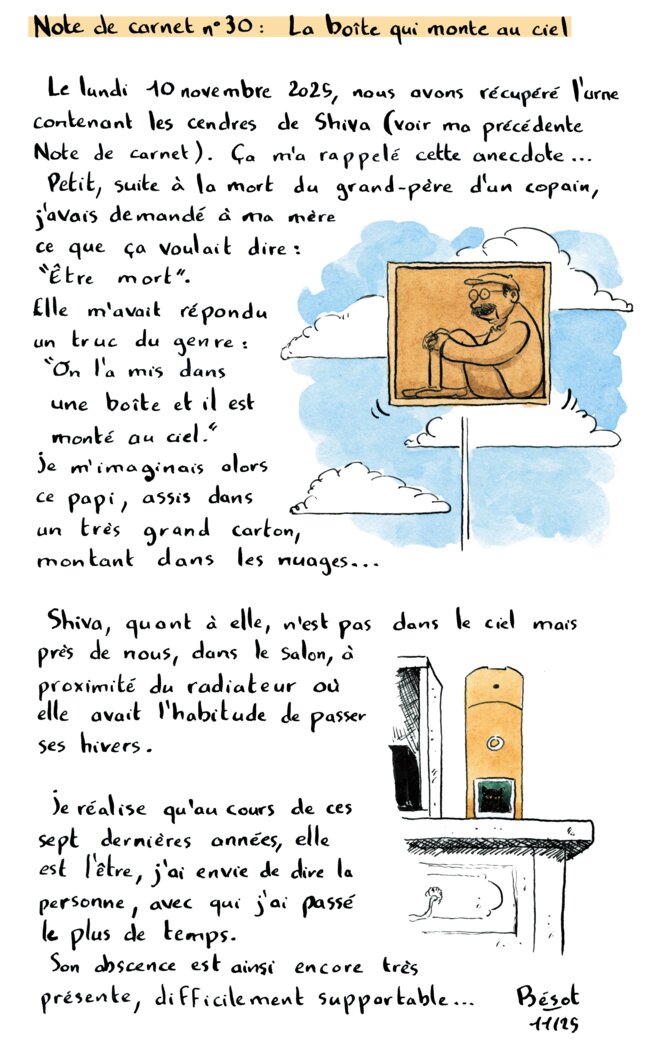 Note de carnet n°30 : La boîte qui monte au ciel
Le lundi 10 novembre 2025, nous avons récupéré l'urne
contenant les cendres de Shiva (voir ma précédente
Note de carnet). Ça m'a rappelé cette anecdote...
Petit, suite à la mort du grand-père d'un copain,
j'avais demandé à ma mère
ce que ça voulait dire :
"Être mort".
Elle m'avait répondu
un truc du genre :
"On l'a mis dans
une boîte et il est
monté au ciel."
Je m'imaginais alors
ce papi, assis dans
un très grand carton,
montant dans les nuages...
Shiva, quant à elle, n'est pas dans le ciel mais
près de nous, dans le salon, à
proximité du radiateur où
elle avait l'habitude de passer
ses hivers.
Je réalise qu'au cours de ces
sept dernières années, elle
est l'être, j'ai envie de dire la
personne, avec qui j'ai passé
le plus de temps.
Son abscence est ainsi encore très
présente, difficilement supportable...
Bésot
11/25